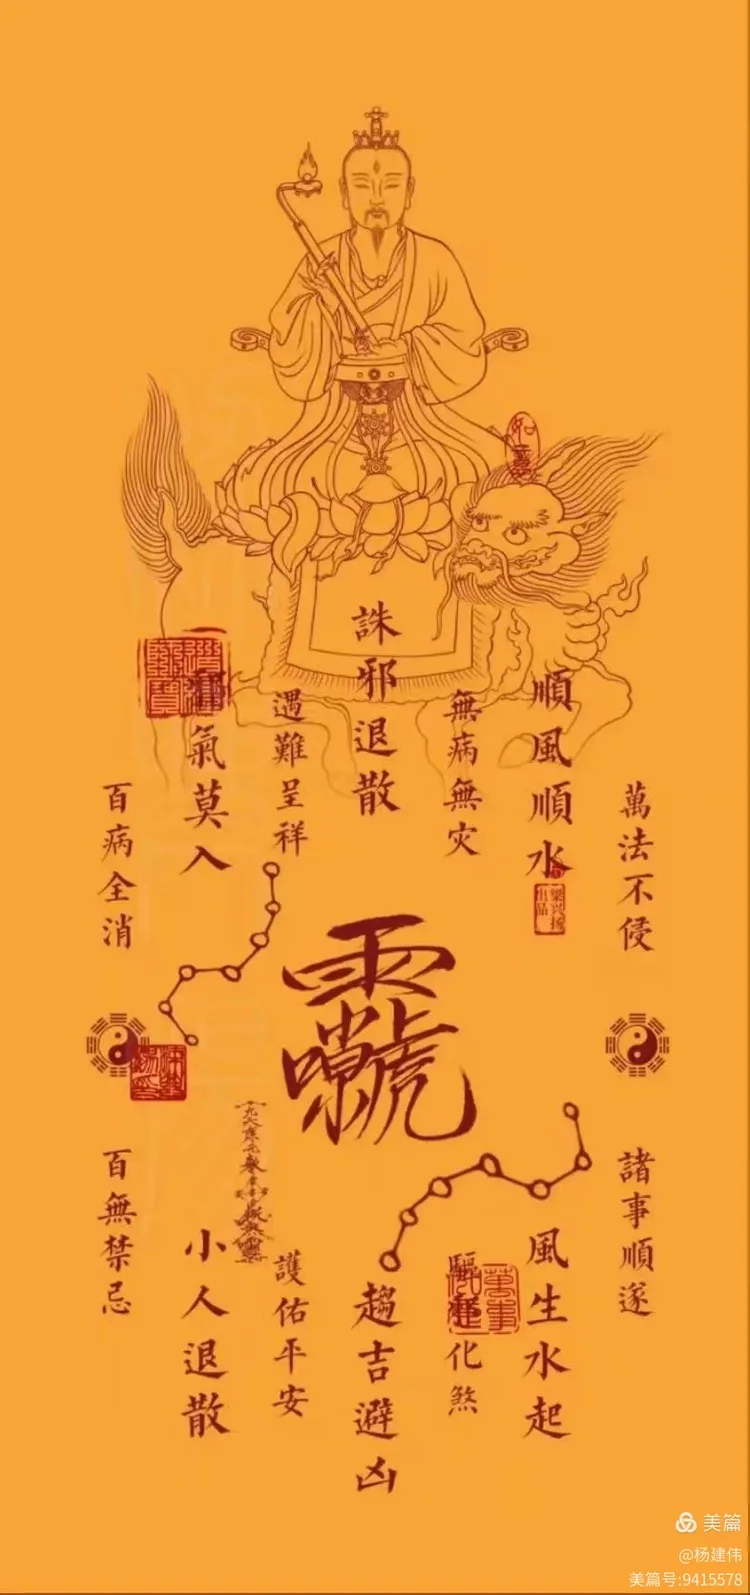 如意
萬法不侵
順風順水
無病無灾
誅邪退散
遇難呈祥
氣莫入
百病全消
諸事順遂
風生水起
萬事
化煞
趨吉避凶
護佑平安
小人退散
百無禁忌
美篇
@杨建伟
美篇号:9415578